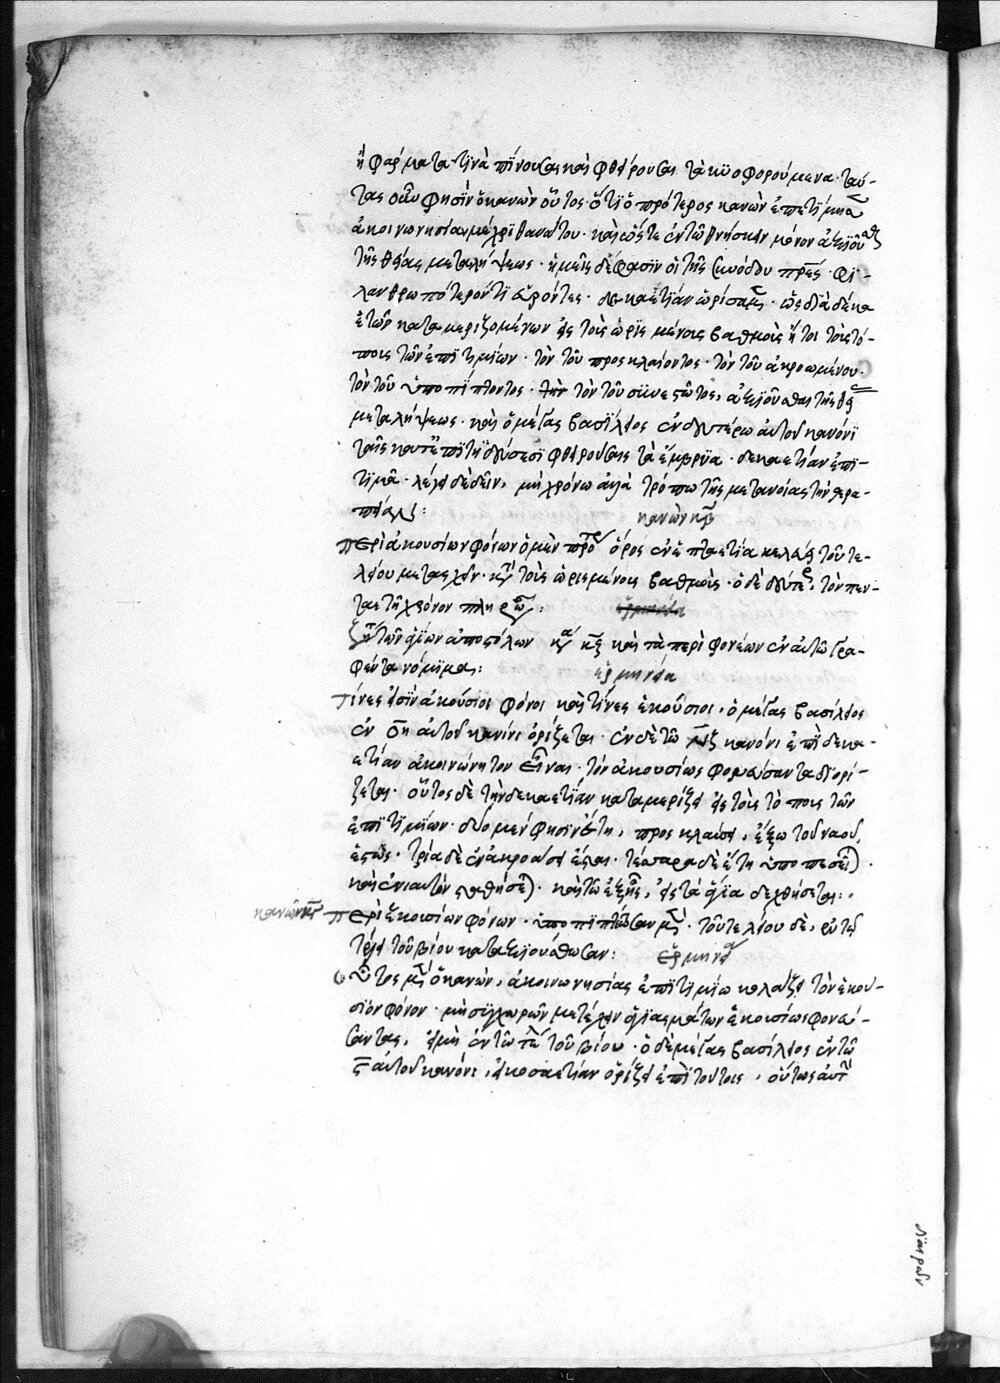 ἢ φάρμακα τινὰ πίνουσαι καὶ φθείρουσαι τὰ κυοφορούμενα· ταύ-
τας οὖν φησὶν ὁ κανὼν οὗτος· ὅτι ὁ πρότερος κανὼν ἐπετίμησεν
ἀκοινωνησίαν μέχρι θανάτου· καὶ ὥστε ἐν τῶ θνήσκειν μόνον ἀξιοῦσθαι
τῆς θείας μεταλήψεως· ἡμεῖς δέ φασϊν οἱ τῆς συνόδου πρες· φι-
λανθρωπότερόν τι εὑρόντες· δεκαετίαν ὡρίσαμεν· ὡς διὰ δέκα
ἐτῶν καταμεριζομένων εἰς τοῖς ὡρισμένοις βαθμοῖς ἤτοι τοῖς τό-
ποις τῶν ἐπιτιμίων· τὸν τοῦ προσκλαίοντος· τὸν τοῦ ἀκροωμένου·
τὸν τοῦ ὑποπίπτοντος· τὸν τοῦ συνεστῶτος, ἀξιοῦσθαι τῆς θείας
μεταλήψεως· καὶ ὁ μέγας βασίλειος ἐν δευτέρω αὐτοῦ κανόνι
ταῖς κατ' ἐπιτήδευσιν φθειρούσαις τὰ ἔμβρυα· δεκαετίαν ἐπι-
τιμᾶ· λέγει δὲ δεῖν, μὴ χρόνω ἀλλὰ τρόπω τῆς μετανοίας τὴν θερα-
πείαν:
κανὼν κβ
περὶ ἀκουσίων φόνων ὁ μὲν πρότερος ὅρος ἐν ἑπταετία κελεύει τοῦ τε-
λείου μετασχεῖν· κατὰ τοὺς ὡρισμένους βαθμούς· ὁ δὲ δεύτερος, τὸν πεν-
ταετῆ χρόνον πληρῶσαι:
ζήτει τῶν ἁγίων ἀποστόλων καὶ τὰ περὶ φονέων ἐν αὐτῶ γρα-
φέντα νόμιμα:
ἑρμηνεία
τίνες εἰσὶν ἀκούσιοι φόνοι καὶ τίνες ἑκούσιοι, ὁ μέγας βασίλειος
ἐν αὐτοῦ κανόνι ὁρίζεται· ἐν δὲ τῶ νζ κανόνι ἐπὶ δεκα-
ετίαν ἀκοινώνητον εἶναι· τὸν ἀκουσίως φονεύσαντα διορί-
ζεται· οὗτος δὲ τὴν δεκαετίαν καταμερίζει εἰς τοὺς τόπους τῶν
ἐπιτιμίων· δύο μὲν φησὶν ἔτη, προσκλαύσει, ἔξω τοῦ ναοῦ
ἑστώς· τρία δὲ ἐν ἀκροάσει ἔσται· τέσσαρα δὲ ἔτη ὑποπεσεῖται·
καὶ ἐνιαυτὸν σταθήσεται· καὶ τῶ ἑξῆς, εἰς τὰ ἅγια δεχθήσεται:
κανὼν κγ
περὶ ἑκουσίων φόνων· ὑποπιπτέτωσαν μὲν· τοῦ τελείου δὲ, ἐν τῶ
τέλει τοῦ βίου καταξιούσθωσαν:
ἑρμηνεία
οὗτος μὲν ὁ κανὼν, ἀκοινωνησίας ἐπιτιμίω κολάζει τὸν ἑκού-
σιον φόνον· μὴ συγχωρῶν μετέχειν ἁγιασμάτων ἑκουσίως φονεύ-
σαντας, εἰ μὴ ἐν τῶ τέλει τοῦ βίου· ὁ δὲ μέγας βασίλειος ἐν τῶ
αὐτοῦ κανόνι, εἰκοσαετίαν ὁρίζει ἐπὶ τούτοις, οὕτως αὐτὴν